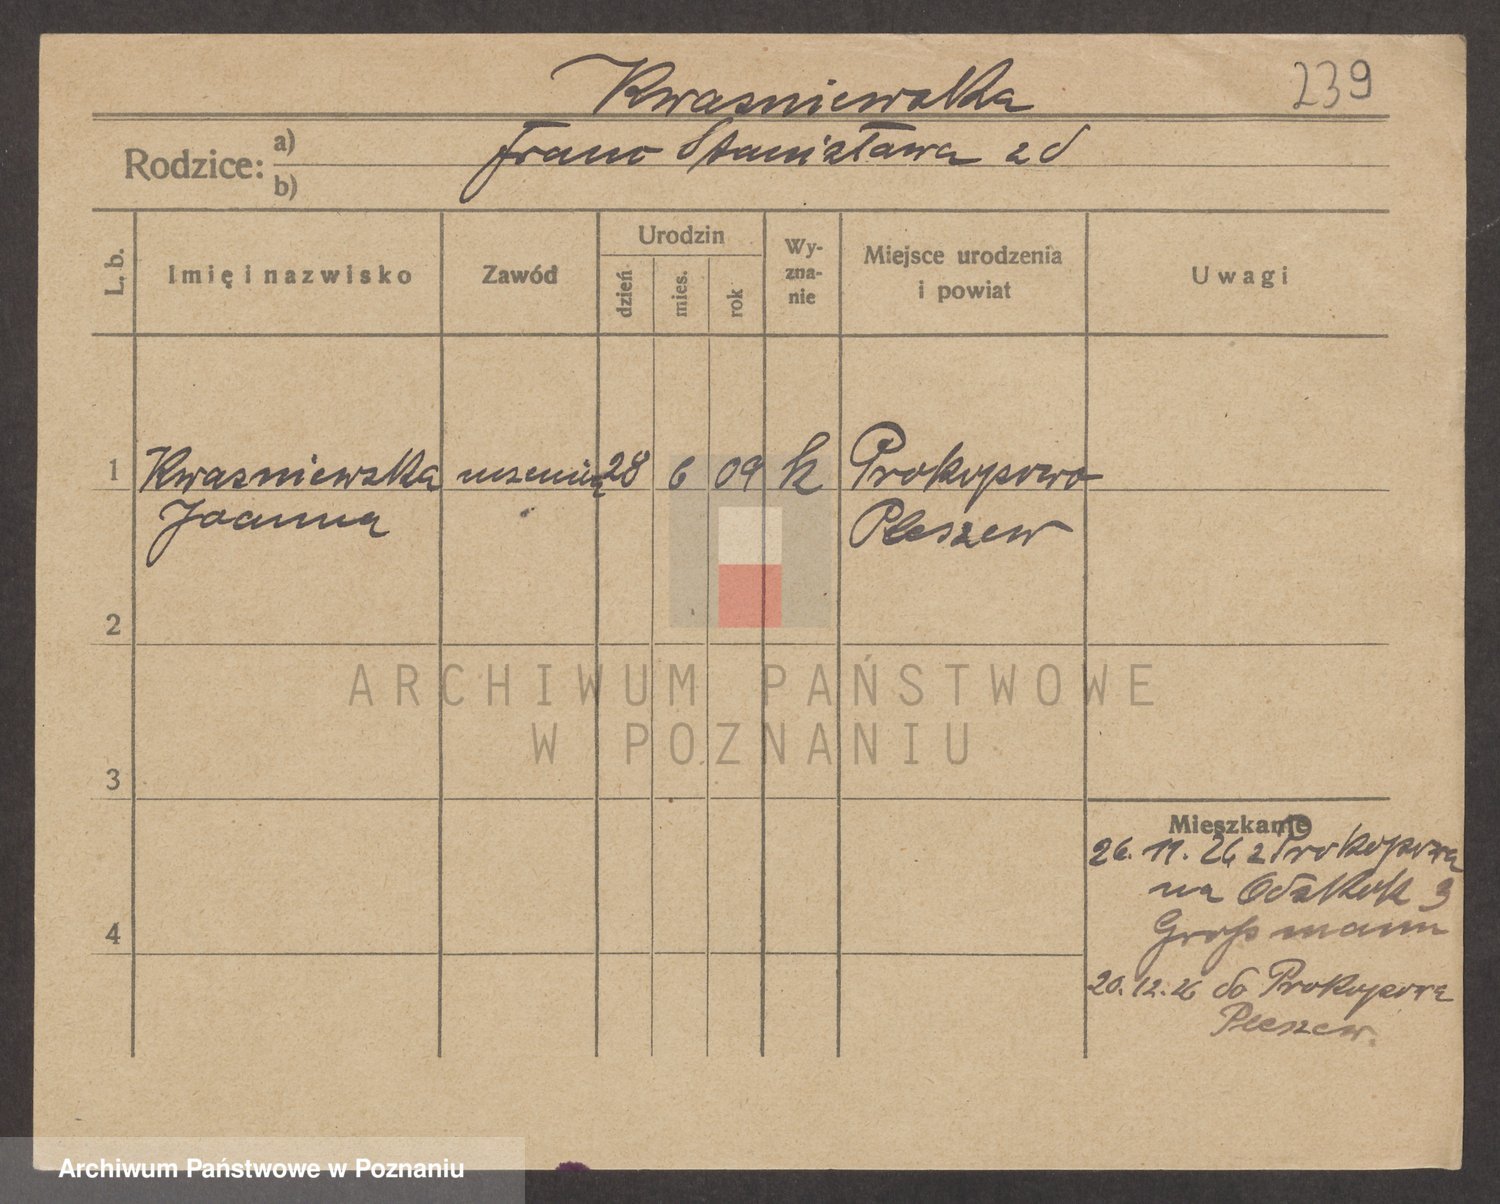 Kwasniewska
239
Rodzice: a) Franc Stanisława z d
b)
L. b.
Imię i nazwisko
Zawód
Urodzin
dzień
mies.
rok
Wy-
zna-
nie
Miejsce urodzenia
i powiat
Uwagi
1 Kwasniewska 28 6 09 k Prokopowo
Joanna Pleszew
2
3
4
Mieszkanie
26. 11. 26 z Prokopowa
na 3
Großmann
20. 12. 26 do Prokopowa
Pleszew.
ARCHIWUM PAŃSTWOWE
W POZNANIU
Archiwum Państwowe w Poznaniu